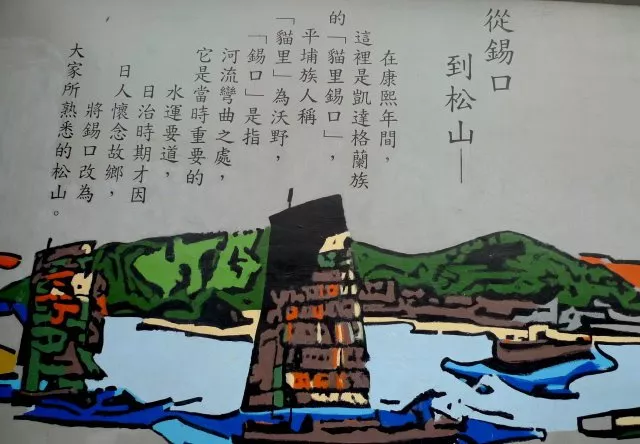 從錫口
到松山—
在康熙年間，
這裡是凱達格蘭族
的「貓里錫口」，
平埔族人稱
「貓里」為沃野，
「錫口」是指
河流彎曲之處，
它是當時重要的
水運要道，
日治時期才因
日人懷念故鄉，
將錫口改為
大家所熟悉的松山。